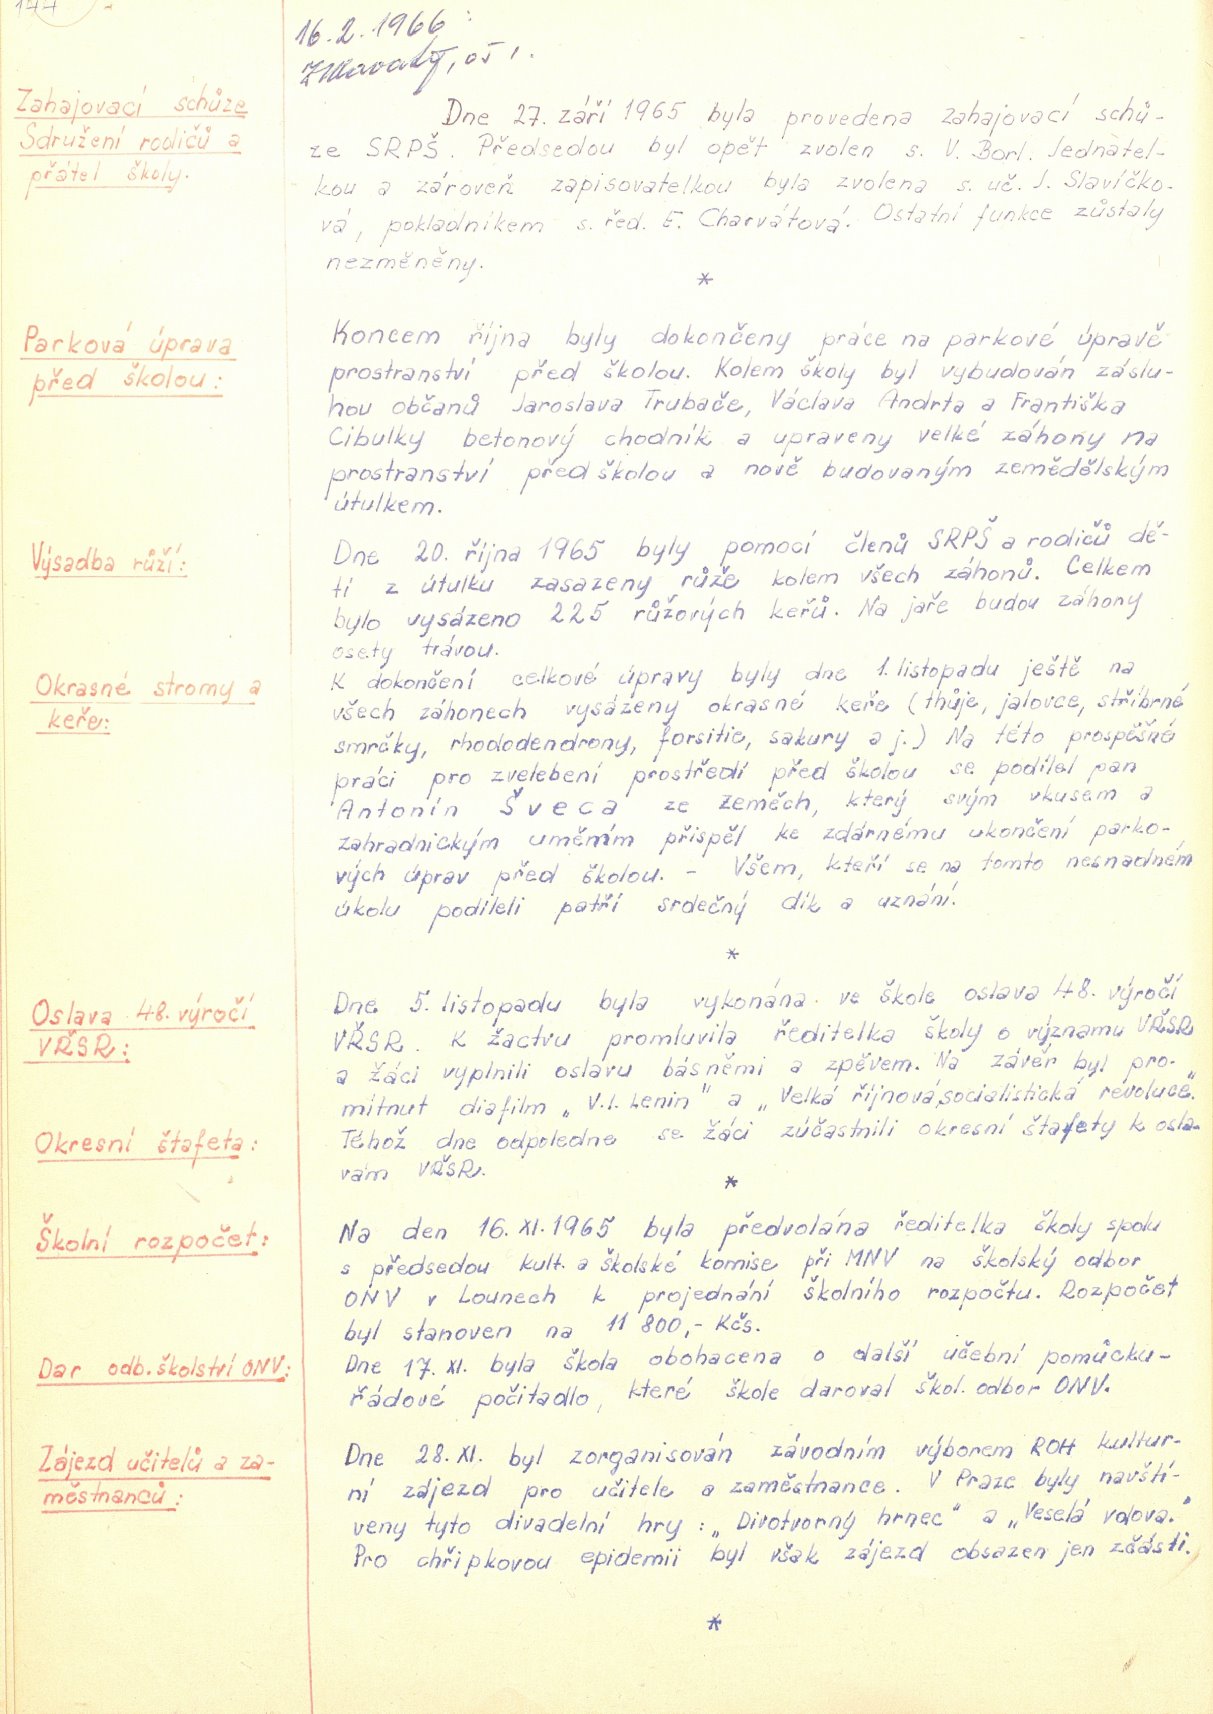 16. 2. 1966
Zahajovací schůze
Sdružení rodičů a
přátel školy.
Dne 27. září 1965 byla provedena zahajovací schů-
ze SRPŠ. Předsedou byl opět zvolen s. V. Borl. Jednatel-
kou a zároveň zapisovatelkou byla zvolena s. uč. J. Slavíčko-
vá, pokladníkem s. řed. E. Charvátová. Ostatní funkce zůstaly
nezměněny.
*
Parková úprava
před školou:
Koncem října byly dokončeny práce na parkové úpravě
prostranství před školou. Kolem školy byl vybudován záslu-
hou občanů Jaroslava Trubače, Václava Andrta a Františka
Cibulky betonový chodník a upraveny velké záhony na
prostranství před školou a nově budovaným zemědělským
útulkem.
Výsadba růží:
Dne 20. října 1965 byly pomocí členů SRPŠ a rodičů dě-
tí z útulku zasazeny růže kolem všech záhonů. Celkem
bylo vysázeno 225 růžových keřů. Na jaře budou záhony
osety trávou.
Okrasné stromy a
keře:
K dokončení celkové úpravy byly dne 1. listopadu ještě na
všech záhonech vysázeny okrasné keře (thůje, jalovce, stříbrné
smrčky, rhododendrony, forsitie, sakury a j.) Na této prospěšné
práci pro zvelebení prostředí před školou se podílel pan
Antonín Šveca ze Zeměch, který svým vkusem a
zahradnickým uměním přispěl ke zdárnému ukončení parko-
vých úprav před školou. - Všem, kteří se na tomto nesnadném
úkolu podíleli patří srdečný dík a uznání.
*
Oslava 48. výročí
VŘSR:
Dne 5. listopadu byla vykonána ve škole oslava 48. výročí
VŘSR. K žactvu promluvila ředitelka školy o významu VŘSR
a žáci vyplnili oslavu básněmi a zpěvem. Na závěr byl pro-
mítnut diafilm „V. I. Lenin" a „Velká říjnová socialistická revoluce."
Okresní štafeta:
Téhož dne odpoledne se žáci zúčastnili okresní štafety k osla-
vám VŘSR.
*
Školní rozpočet:
Na den 16. XI. 1965 byla předvolána ředitelka školy spolu
s předsedou kult. a školské komise při MNV na školský odbor
ONV v Lounech k projednání školního rozpočtu. Rozpočet
byl stanoven na 11 800,- Kčs.
Dar odb. školství ONV:
Dne 17. XI. byla škola obohacena o další učební pomůcku-
řádové počitadlo, které škole daroval škol. odbor ONV.
Zájezd učitelů a za-
městnanců:
Dne 28. XI. byl zorganisován závodním výborem ROH kultur-
ní zájezd pro učitele a zaměstnance. V Praze byly navští-
veny tyto divadelní hry: „Divotvorný hrnec" a „Veselá vdova."
Pro chřipkovou epidemii byl však zájezd obsazen jen zčásti.
*